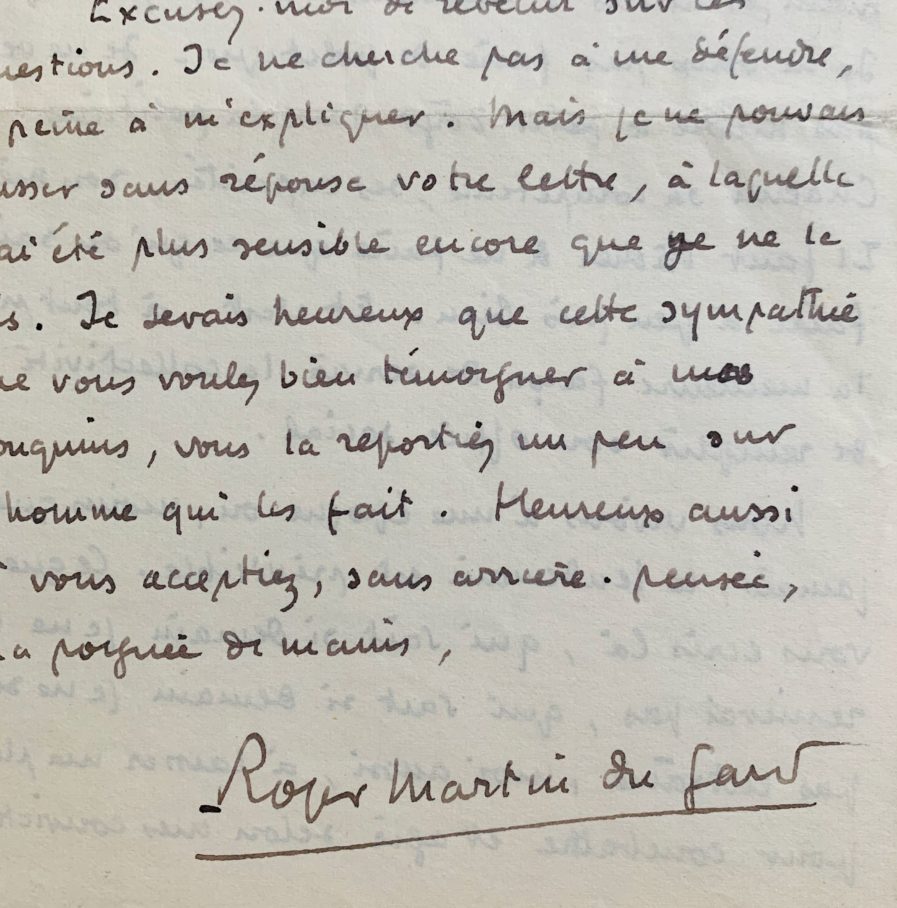 Excusez-moi de revenir sur ces
uestions. Je ne cherche pas à me défendre,
peine à m'expliquer. Mais je ne pouvais
isser sans réponse votre lettre, à laquelle
ai été plus sensible encore que je ne le
is. Je serais heureux que cette sympathie
ue vous voulez bien témoigner à mes
ouquins, vous la reportiez un peu sur
homme qui les fait. Heureux aussi
vous acceptiez, sans arrière-pensée,
la poignée de mains,
Roger Martin du Gard